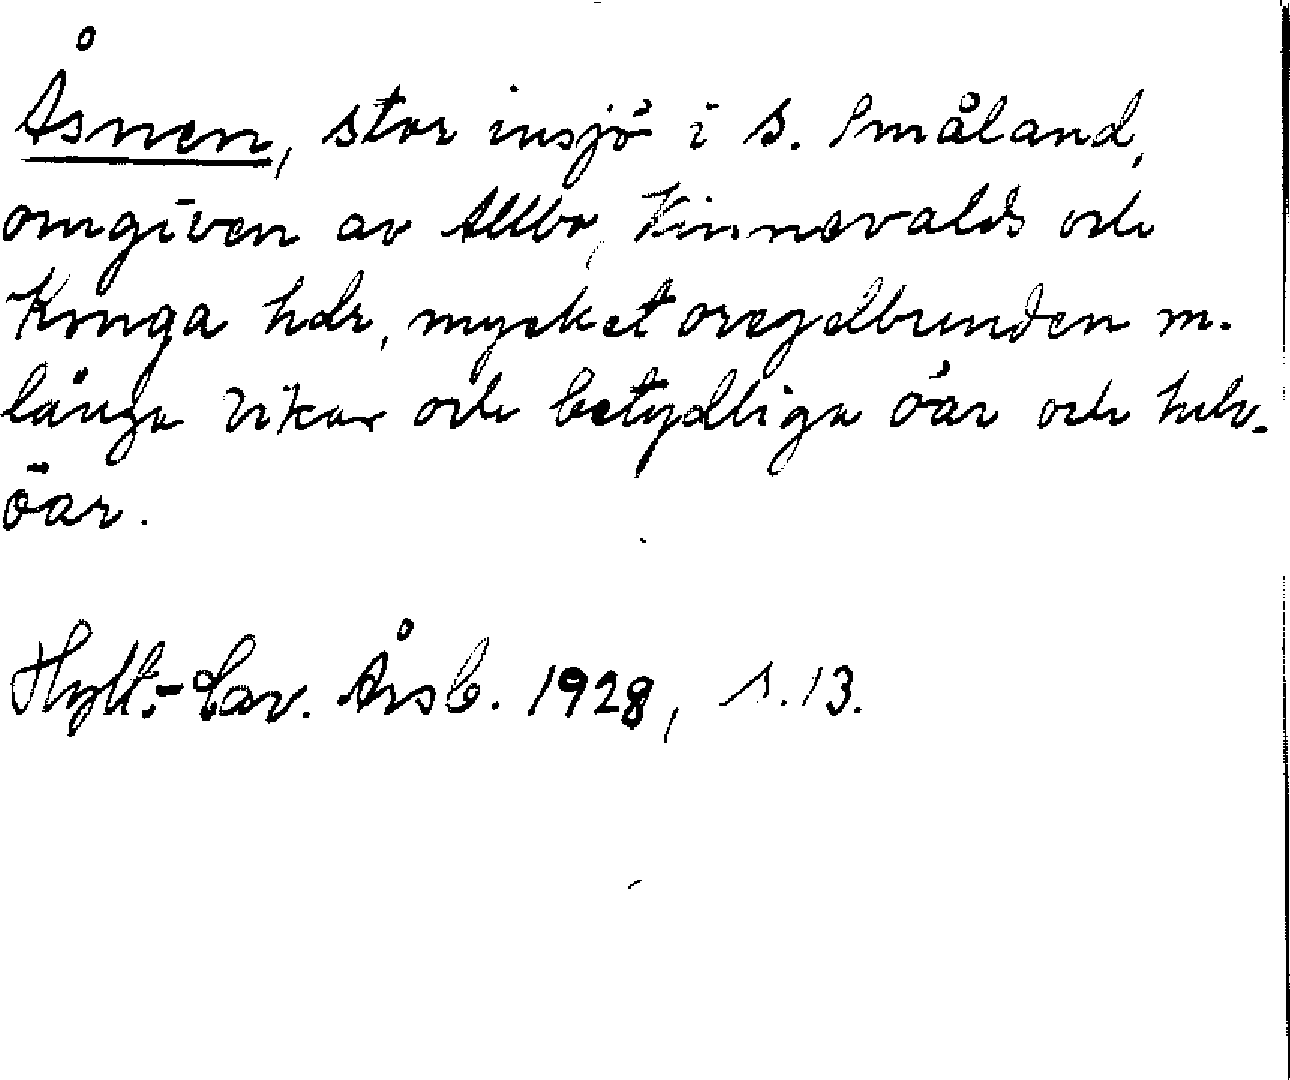 Åsnen, stor insjö i s. Småland,
omgiven av Allbo, Kinnevalds och
Konga hdr, mycket oregelbunden m.
långa vikar och betydliga öar och halv-
öar.
Hylt.-Cav. Årsb. 1928, s. 13.